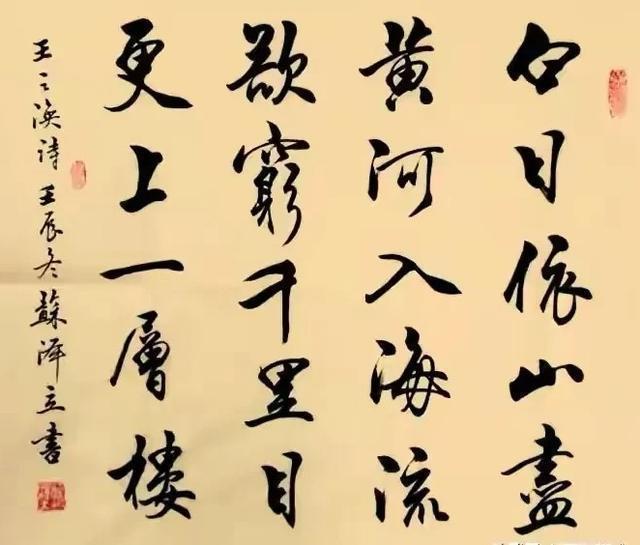 白日依山盡
黃河入海流
欲窮千里目
更上一層樓
王之渙诗 王辰冬 蘇泽立書